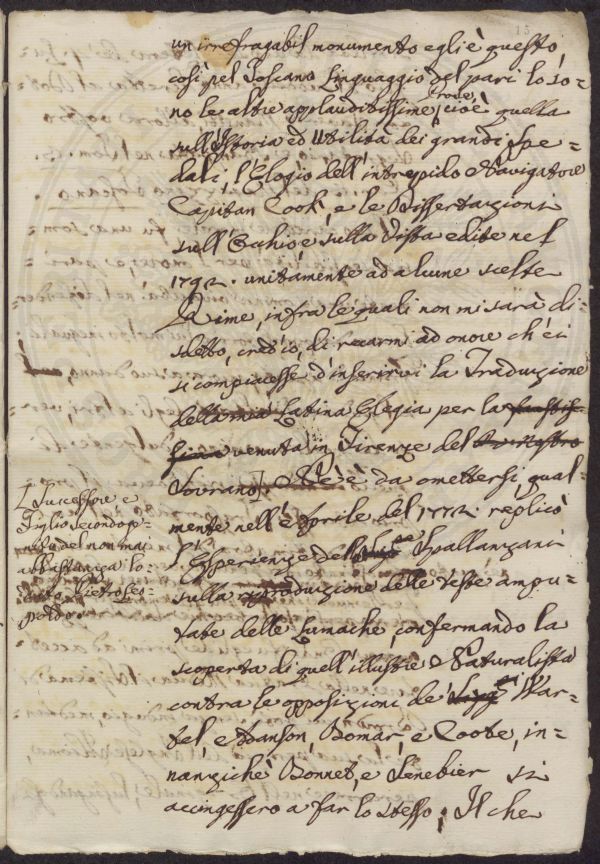 15
un irrefragabil monumento egli è questo,
così pel Toscano Linguaggio del pari lo so-
no le altre applauditissime Prove, cioè quella
sull'Istoria ed Utilità dei grandi Spe-
dali, l'Elogio dell'intrepido Navigatore
Capitan Cook, e le Dissertazioni
sull'Occhio e sulla Vista edite nel
1792. unitamente ad alcune scelte
Rime, infra le quali non mi sarà di-
sdetto, cred'io, di recarmi ad onore ch'ei
si compiacesse d'inserirvi la Traduzione
della mia Latina Elegia per la faustis-
sima venuta in Firenze del
Sovrano] Nè è da omettersi, qual-
mente nell'Aprile del 1772. replicò
l'Esperienze dell' Spallanzani
sulla riproduzione delle Teste ampu-
tate delle Lumache confermando la
scoperta di quell'illustre Naturalista
contra le opposizioni de' War-
tel, Adanson, Bomar, e Coote, in-
nanziché Bonnet, e Senebier si
accingessero a far lo stesso. Il che
[Successore e
Figlio Secondoge-
nito del non mai
abbastanza lo-
dato Pietro Leo-
poldo.